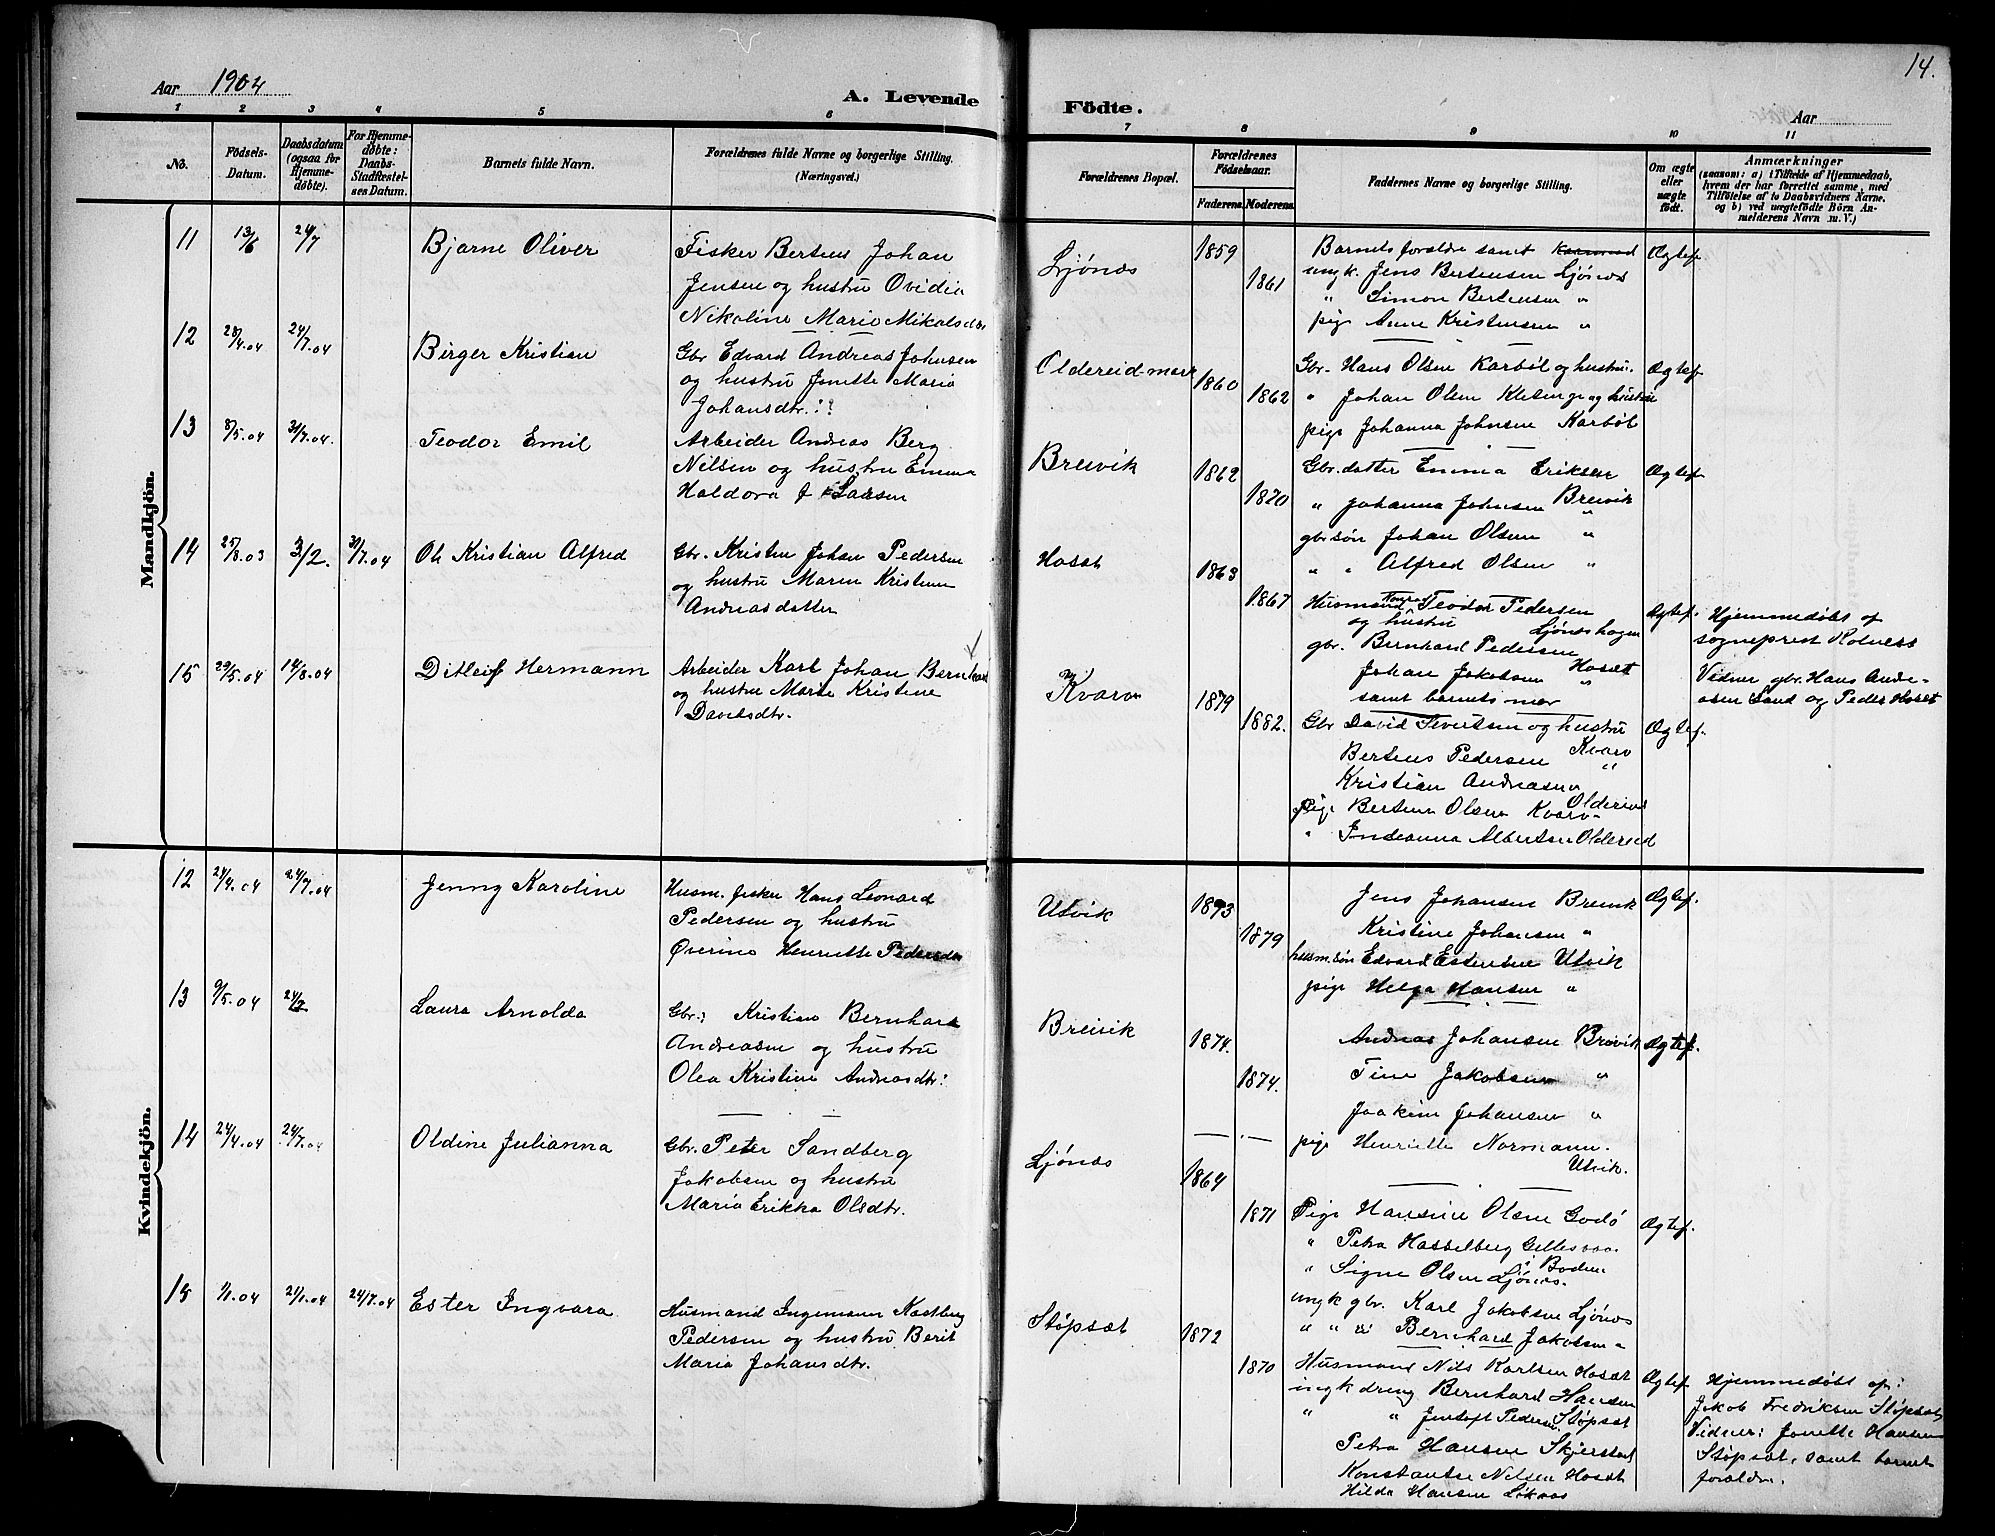 14.
Aar 1904
A. Levende Födte.
Aar
1 2 3 4 5 6 7 8 9 10 11
No.
Födsels-Datum.
Daabsdatum (ogsaa for Hjemmedöbte).
For Hjemmedöbte: Daabs-Stadfæstelses Datum.
Barnets fulde Navn.
Forældrenes fulde Navne og borgerlige Stilling. (Næringsvei.)
Forældrenes Bopæl.
Forældrenes Födselsaar.
Faderens. Moderens.
Faddernes Navne og borgerlige Stilling.
Om ægte eller uægte födt.
Anmærkninger
(saasom: a) i Tilfælde af Hjemmedaab, hvem der har forrettet samme, med Tilföielse af to Daabsvidners Navne. og b) ved uægtefödte Börn Anmelderens Navn m. V.)
Mandkjön.
11 13/6 24/7 Bjarne Oliver
Fisker Berteus Johan
Jensen og hustru Ovidia
Nikoline Marie Mikalsdtr
Ljönes 1859 1861
Barnets forældre samt
ungk. Jens Bertensen Ljönes
" Simon Bertensen "
pige Anne Kristensen "
Ægtef.
12 28/4.04 24/7.04 Birger Kristian
Gbr Edvard Andreas Johnsen
og hustru Jonette Maria
Johansdtr.
Oldereid-mark 1860 1862
Gbr. Hans Olsen Karböl og hustru.
" Johan Olsen Kletinge og hustru
pige Johanna Johnsen Karböl
Ægtef.
13 8/5.04 31/7.04. Teodor Emil
Arbeider Andreas Berg
Nilsen og hustru Emma
Haldora J Larsen
Breivik 1862 1870
Gbr. datter Emma Eriksen
" Johanna Johnsen Breivik
gbr.sön Johan Olsen "
" " Alfred Olsen "
Ægtef.
14 25/8.03 3/2. 31/7.04 Ole Kristian Alfred
Gbr. Kristen Johan Pedersen
og hustru Maren Kristine
Andreasdatter
Hosæt 1863 1867
Husmand Konrad Teodor Pedersen
og hustru Ljöneshagen
gbr. Bernhard Pedersen
Johan Jakobsen Hosæt
samt barnets mor
Ægtef.
Hjemmedöbt af
sogneprest Rotness
Vidner gbr. Hans Andersen
Sand og Peder Hosæt
15 29/5.04 14/8.04 Ditleif Hermann
Arbeider Karl Johan Bernhard
og hustru Marie Kristine
Davidsdtr.
Kvarv 1879 1882.
Gbr David Sivertsen og hustru
Kvarv
Berteus Pedersen "
Kristian Andreasen
Oldereid
pige Bertine Olsen Kvarv
" Indianna Albertsen Oldereid
Ægtef.
Kvindekjön.
12 24/4.04 24/7.04 Jenny Karoline
Husm. fisker Hans Leonard
Pedersen og hustru
Overine Henriette Pedersdtr
Utvik 1873 1879
Jens Johansen Breivik
Kristine Johansen "
husm.sön Edvard Estensen Utvik
pige Helga Hansen "
Ægtef.
13 9/5.04 24/7 Laura Arnolda
Gbr: Kristian Bernhard
Andreasen og hustru
Olea Kristine Andreasdtr:
Breivik 1874. 1874.
Andreas Johansen Breivik
Tine Jakobsen "
Joakim Johansen "
pige Henriette Normann.
Utvik.
Ægtef.
14 24/4.04 24/7.04 Oldine Julianna
Gbr. Peter Sandberg
Jakobsen og hustru
Maria Erikka Olsdtr.
Ljönes 1864 1871
Pige Hansine Olsen Godö
" Petra Hasselberg Gillesvaa
i Bodin.
" Signe Olsen Ljönes.
ungk gbr. Karl Jakobsen Ljönes
" " " Bernhard Jakobsen "
Ægtef.
15 1/1.04 21/1.04 24/7.04 Ester Ingvara
Husmand Ingemann
Pedersen og hustru Berit
Maria Johansdtr.
Stöpsæt 1872 1870
Husmand Nils Karlsen Hosæt
ungk dreng Bernhard Hansen
" " Jentoft Pedersen Stöpsæt
Petra Hansen Skjerstad
Konstantse Nilsen Hosæt
Hilda Hansen
Ægtef
Hjemmedöbt af:
Jakob Fredriksen Stöpsæt
Vidner: Jonette Hansen
Stöpsæt, samt barnets
forældre.